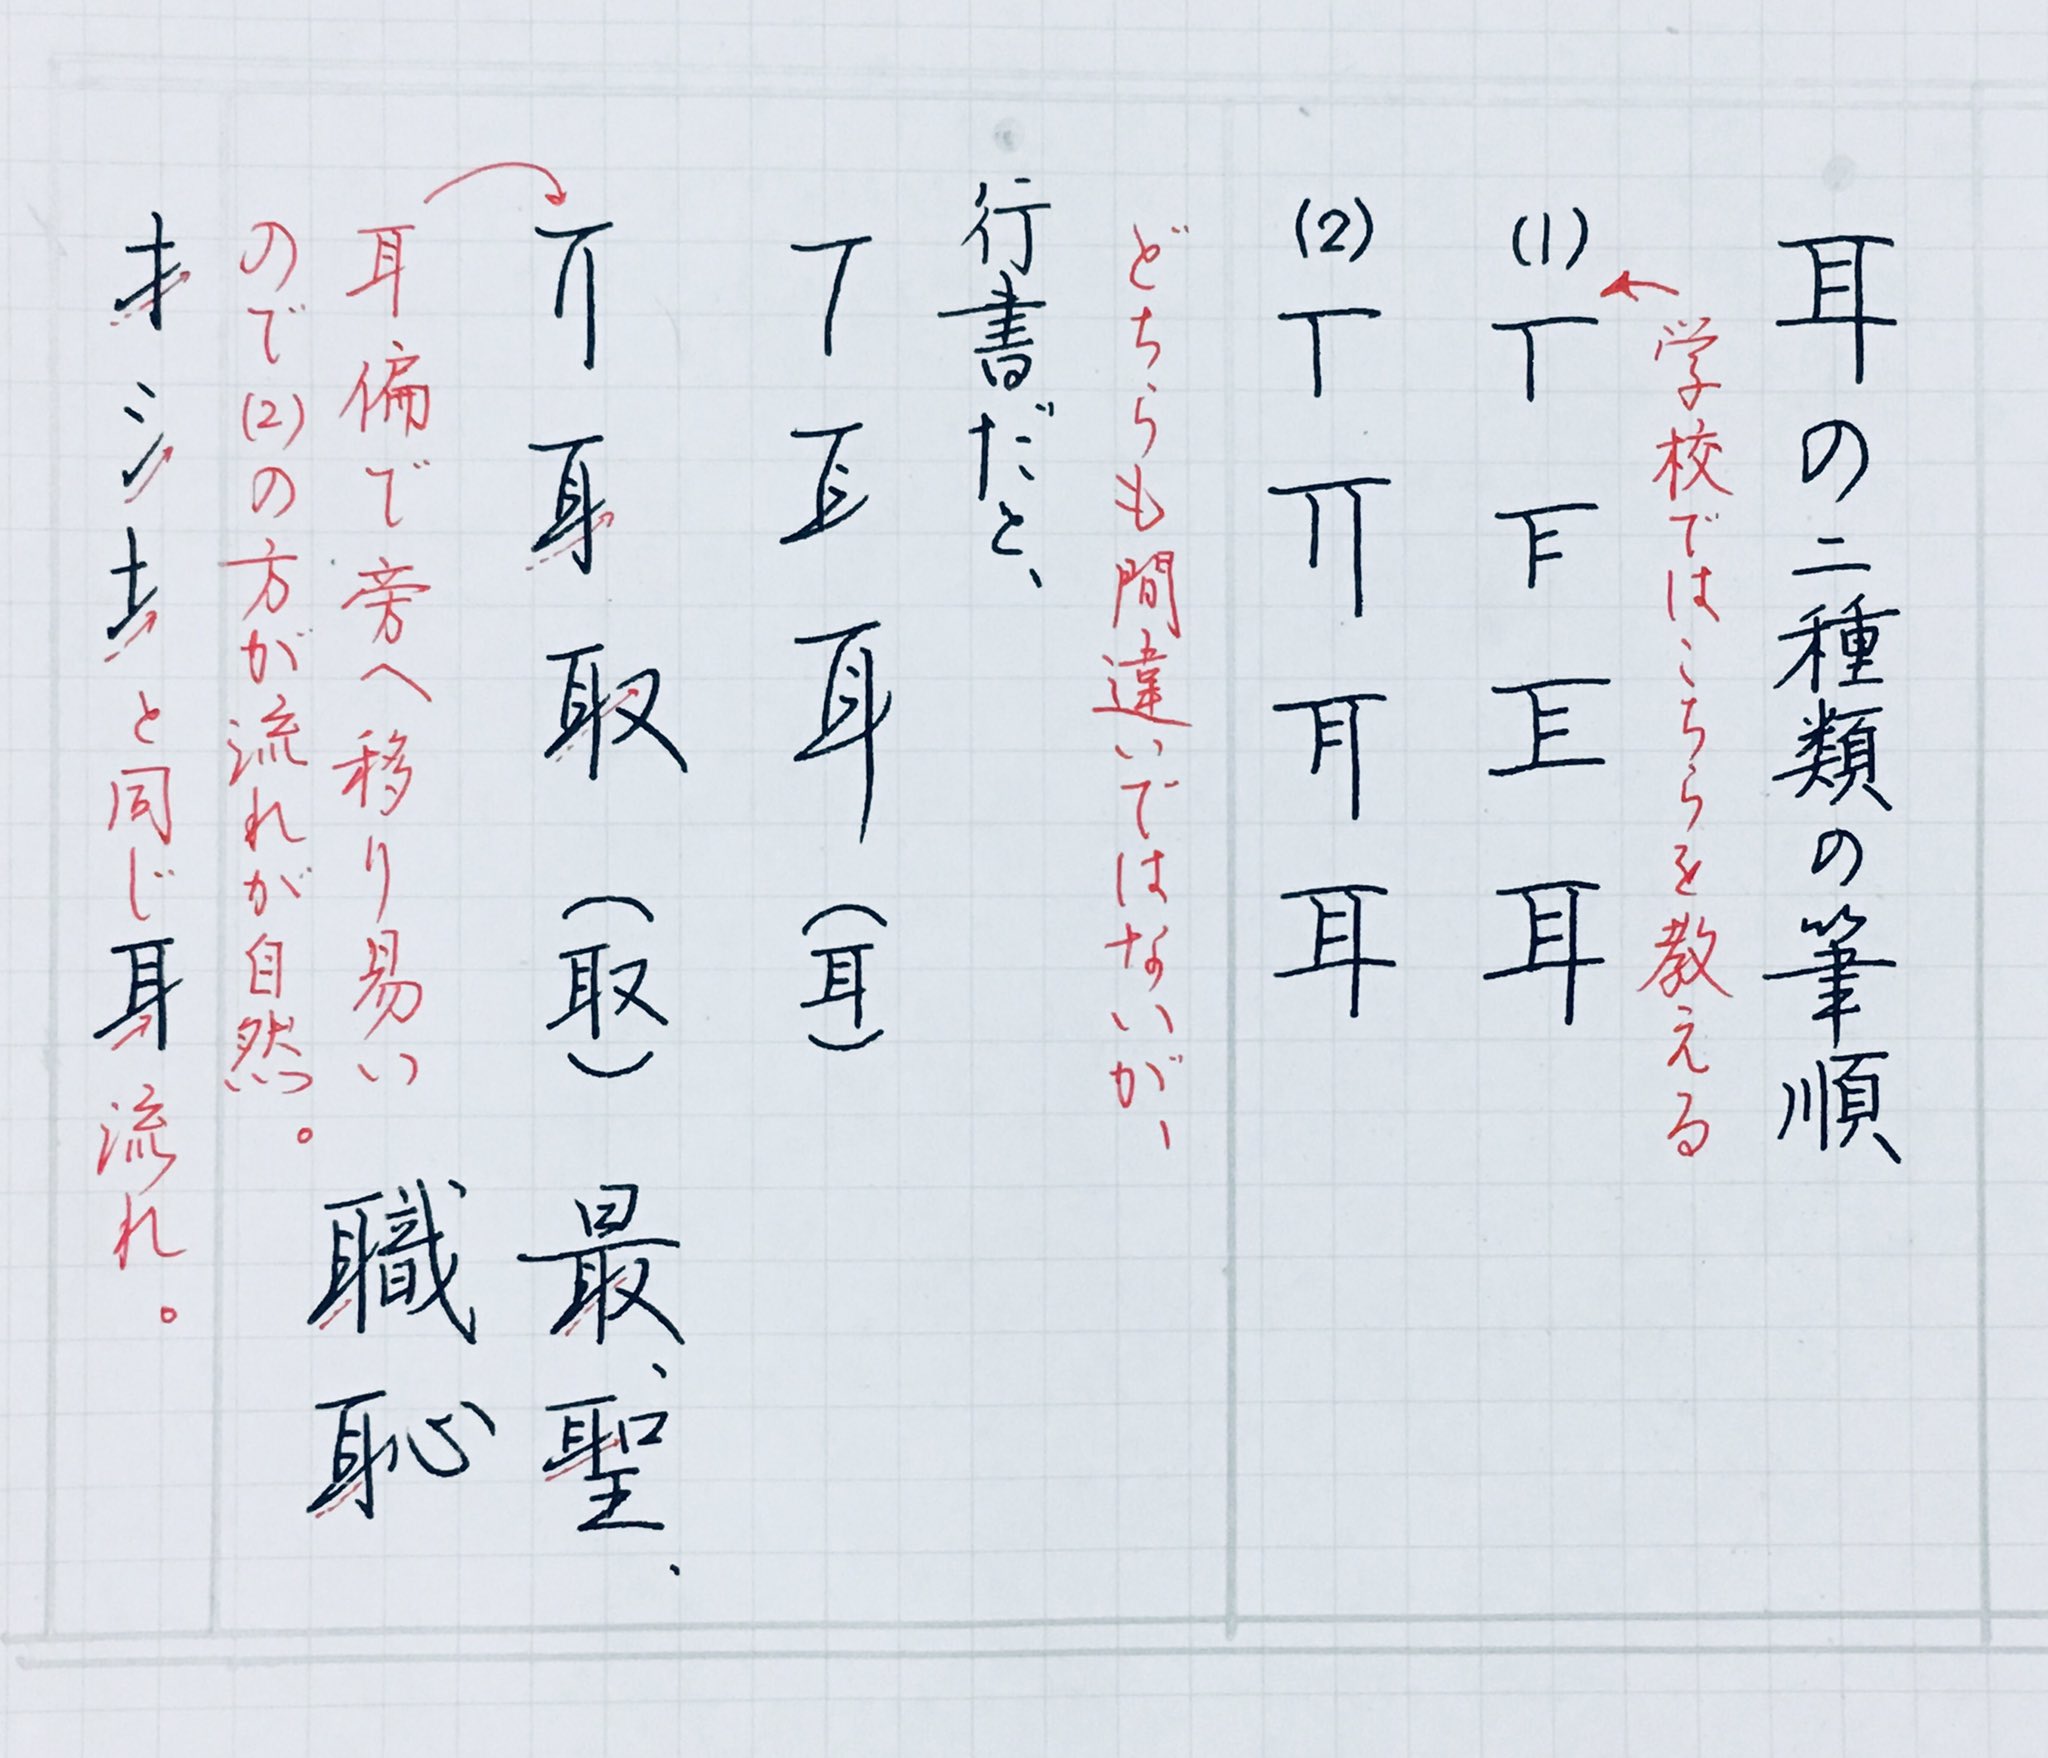 耳の二種類の筆順
学校ではこちらを教える
(1)
耳
(2)
耳
どちらも間違いではないが、
行書だと、
耳(耳)
耳取(取)最、聖、
耳偏で旁へ移り易い職恥
ので(2)の方が流れが自然。
と同じ耳流れ。